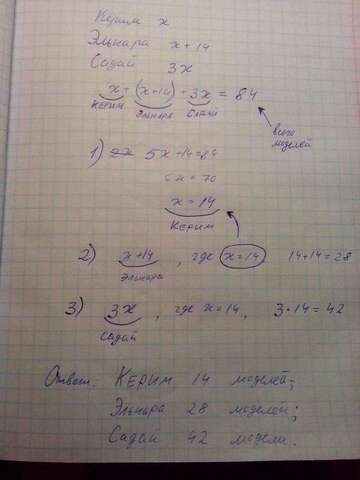 Керим x
Эльнара x + 14
Садай 3x
x + (x+14) + 3x = 84
Керим Эльнара Садай
всего моделей
1) 5x+14=84
5x = 70
x = 14
Керим
2) x+14, где x=14 14+14=28
Эльнара
3) 3x, где x=14, 3·14=42
Садай
Ответ. Керим 14 моделей;
Эльнара 28 моделей;
Садай 42 модели.